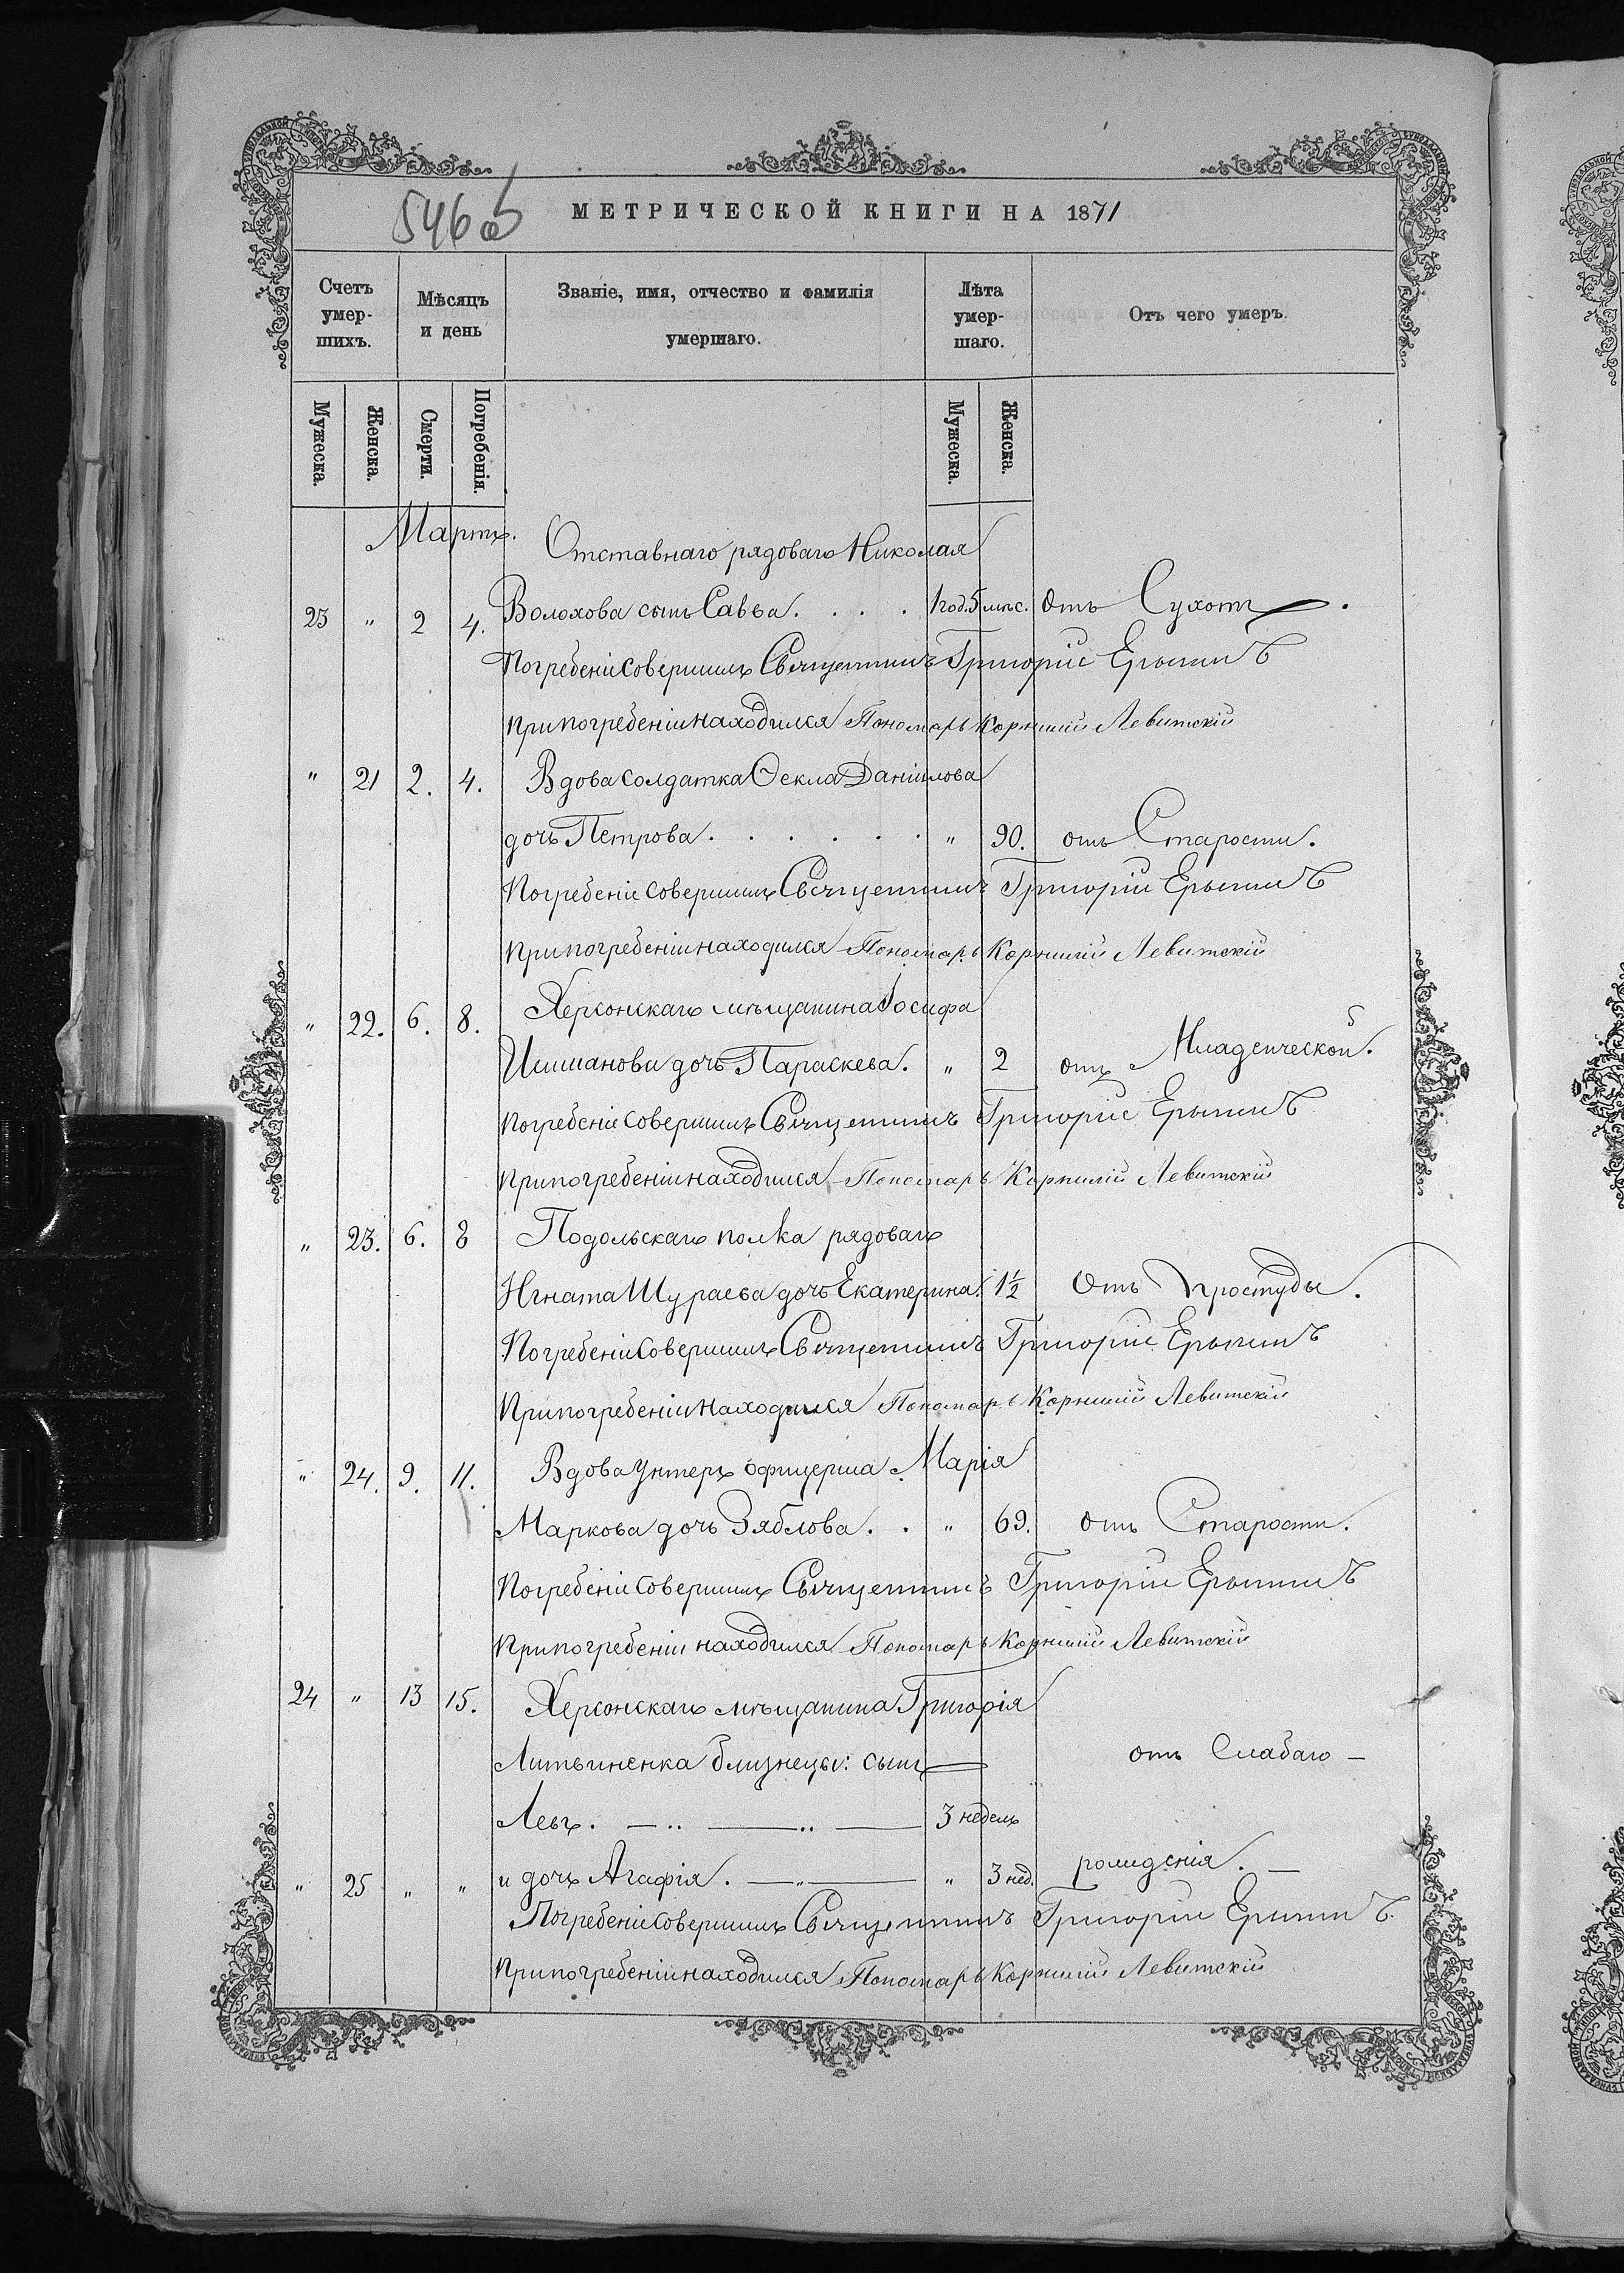 546 об
МЕТРИЧЕСКОЙ КНИГИ НА 1871
Счетъ умер-шихъ.
Мѣсяцъ и день
Званіе, имя, отчество и фамилія умершаго.
Лѣта умер-шаго.
Отъ чего умеръ.
Мужеска.
Женска.
Смерти.
Погребенія.
Мужеска.
Женска.
Мартъ.
Отставнаго рядоваго Николая
23 " 2 4. Волохова сынъ Савва. . . . 1 год. 5 мѣс. Отъ Сухотъ.
Погребеніе совершилъ Священникъ Григорій
При погребеніи находился Пономарь Корнилій Левитскій
" 21 2. 4. Вдова солдатка Ѳекла Даніилова
дочь Петрова . . . . . . " 90. отъ Старости.
Погребеніе совершилъ Священникъ Григорій
При погребеніи находился Пономарь Корнилій Левитскій
" 22. 6. 8. Херсонскаго мѣщанина Іосифа
дочь Параскева. " 2 отъ Младенческой.
Погребеніе совершилъ Священникъ Григорій
При погребеніи находился Пономарь Корнилій Левитскій
" 23. 6. 8 Подольскаго полка рядоваго
Игната Шураева дочь Екатерина. 1½ Отъ простуды.
Погребеніе совершилъ Священникъ Григорій
При погребеніи находился Пономарь Корнилій Левитскій
" 24. 9. 11. Вдова Унтеръ офицерша Марія
Маркова дочь Зяблова. . " 69. отъ Старости.
Погребеніе совершилъ Священникъ Григорій
При погребеніи находился Пономарь Корнилій Левитскій
24 " 13 15. Херсонскаго мѣщанина Григорія
Литвиненка близнецы: сынъ — отъ Слабаго —
Левъ. — .. — .. — 3 недель
" 25 " " и дочь Агафія. — " — " 3 нед. рожденія. —
Погребеніе совершилъ Священникъ Григорій
При погребеніи находился Пономарь Корнилій Левитскій